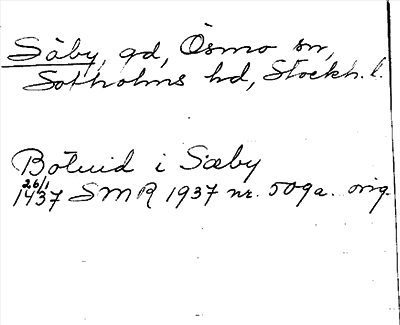 Säby, gd, Ösmo sn,
Sotholms hd, Stockh. l.
Botuid i Sæby
26/1
1437 SMR 1937 nr. 509a. orig.